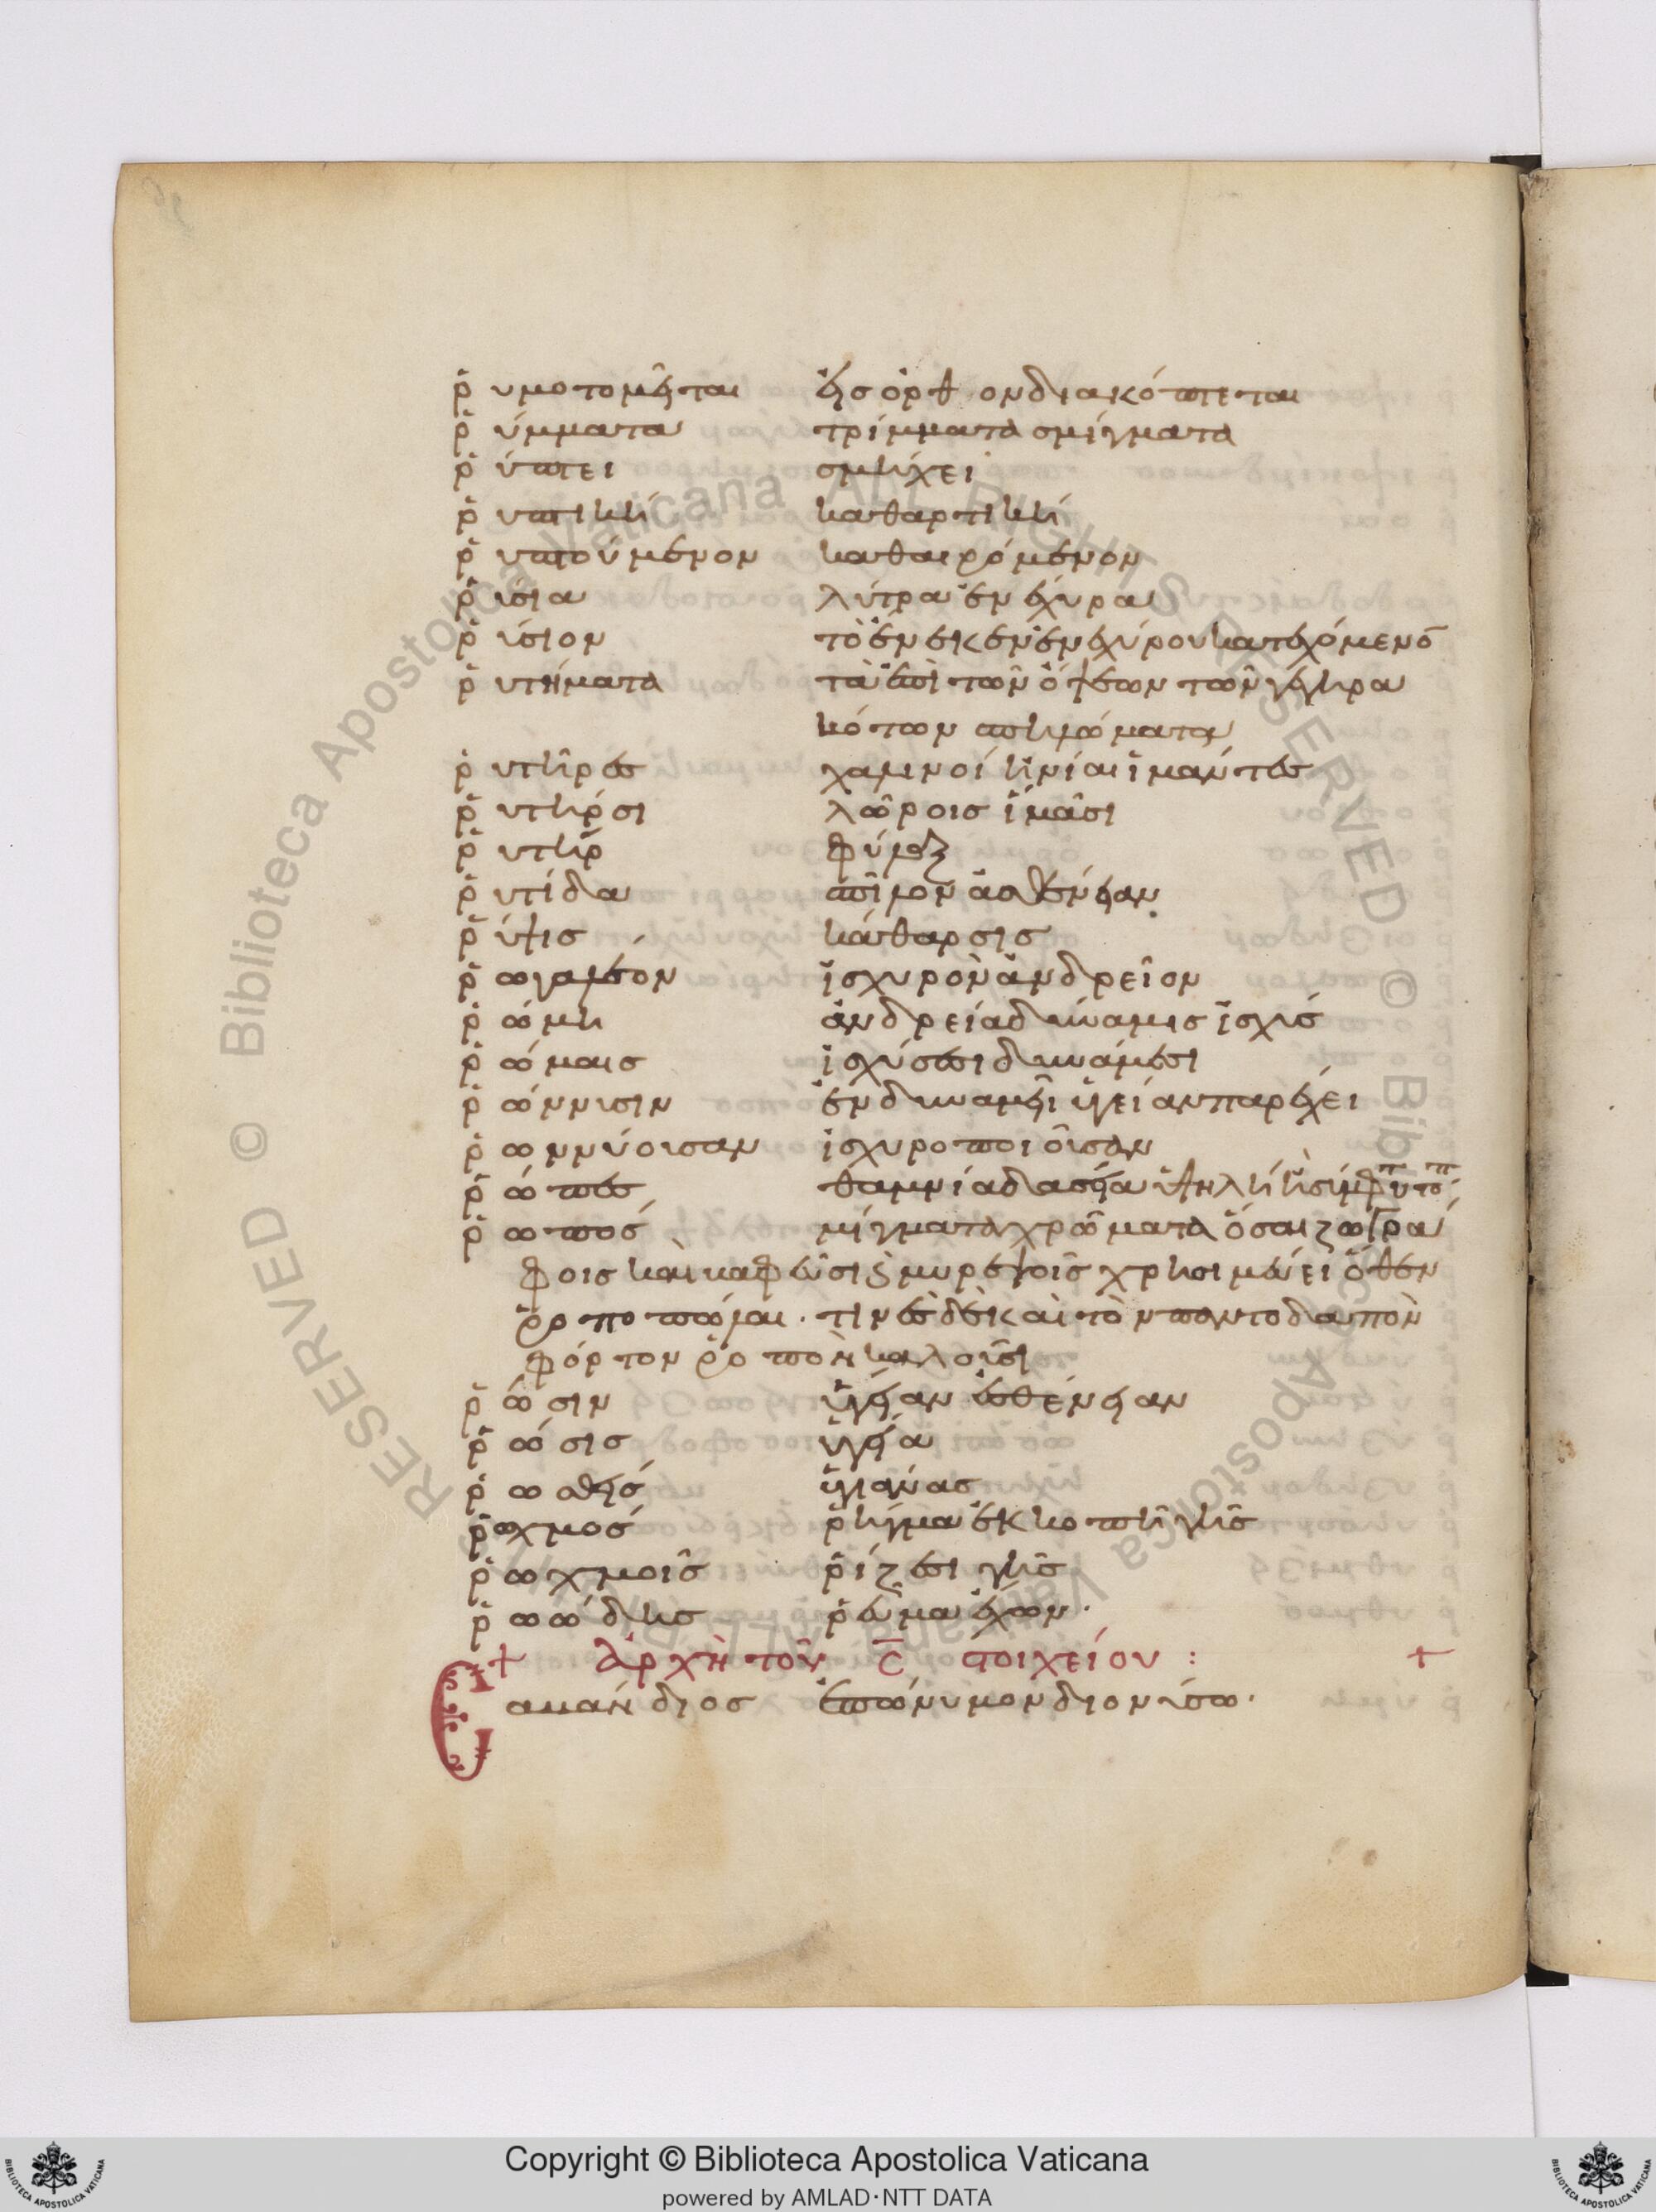 ῥυμοτομεῖται εἰς ὀρθὸν διακόπτεται
ῥύμματα τρίμματα σμίγματα
ῥύπτει σμήχει
ῥυπτικὴ καθαρτικὴ
ῥυπτούμενον καθαιρόμενον
ῥύσια λύτρα ἐνέχυρα
ῥύσιον τὸ ἕνεκεν ἐνεχύρου κατεχόμενον
ῥυτήματα τὰ ἐπὶ τῶν ὄψεων τῶν γεγηρα
κότων πληρώματα
ῥυτῆρες χαλινοὶ ἡνίαι ἱμάντες
ῥυτῆρσι λώροις ἱμᾶσι
ῥυτὴρ φύλαξ
ῥυτίδα πῖλον ἀσθένειαν
ῥύψις κάθαρσις
ῥωμαλέον ἰσχυρὸν ἀνδρεῖον
ῥώμη ἀνδρεία δύναμις ἰσχύς
ῥώμαις ἰσχύσεσι δυνάμεσι
ῥώννυσιν ἐνδυναμεῖ ὑγείαν παρέχει
ῥωννύουσαν ἰσχυροποιοῦσαν
ῥῶπες θαμνία δασέα ὕλη λη ἡ σύμφυτος
ῥωπος μίγματα χρώματα ὅσα ζωγρά
φοις καὶ βαφεῦσι καὶ μυρεψοῖς χρησιμεύει ὅθεν
ῥοποπῶλαι. τινὲς δὲ καὶ τὸν παντοδαπὸν
φόρτον ῥοπον καλοῦσι
ῥῶσιν ὑγείαν εὐσθένειαν
ῥῶσις ὑγεία
ῥωσθεὶς ὑγιάνας
ῥωχμος ῥῆγμα ἐκκοπὴ γῆς
ῥωχμοῖς ῥίζεσι γῆς
ῥοώδης ῥεῦμα ἔχων.
+ Ἀρχὴ τοῦ C̅ στοιχείου : +
Σαμάνδιος ἐπώνυμον διονύσω.
Copyright © Biblioteca Apostolica Vaticana
powered by AMLAD·NTT DATA